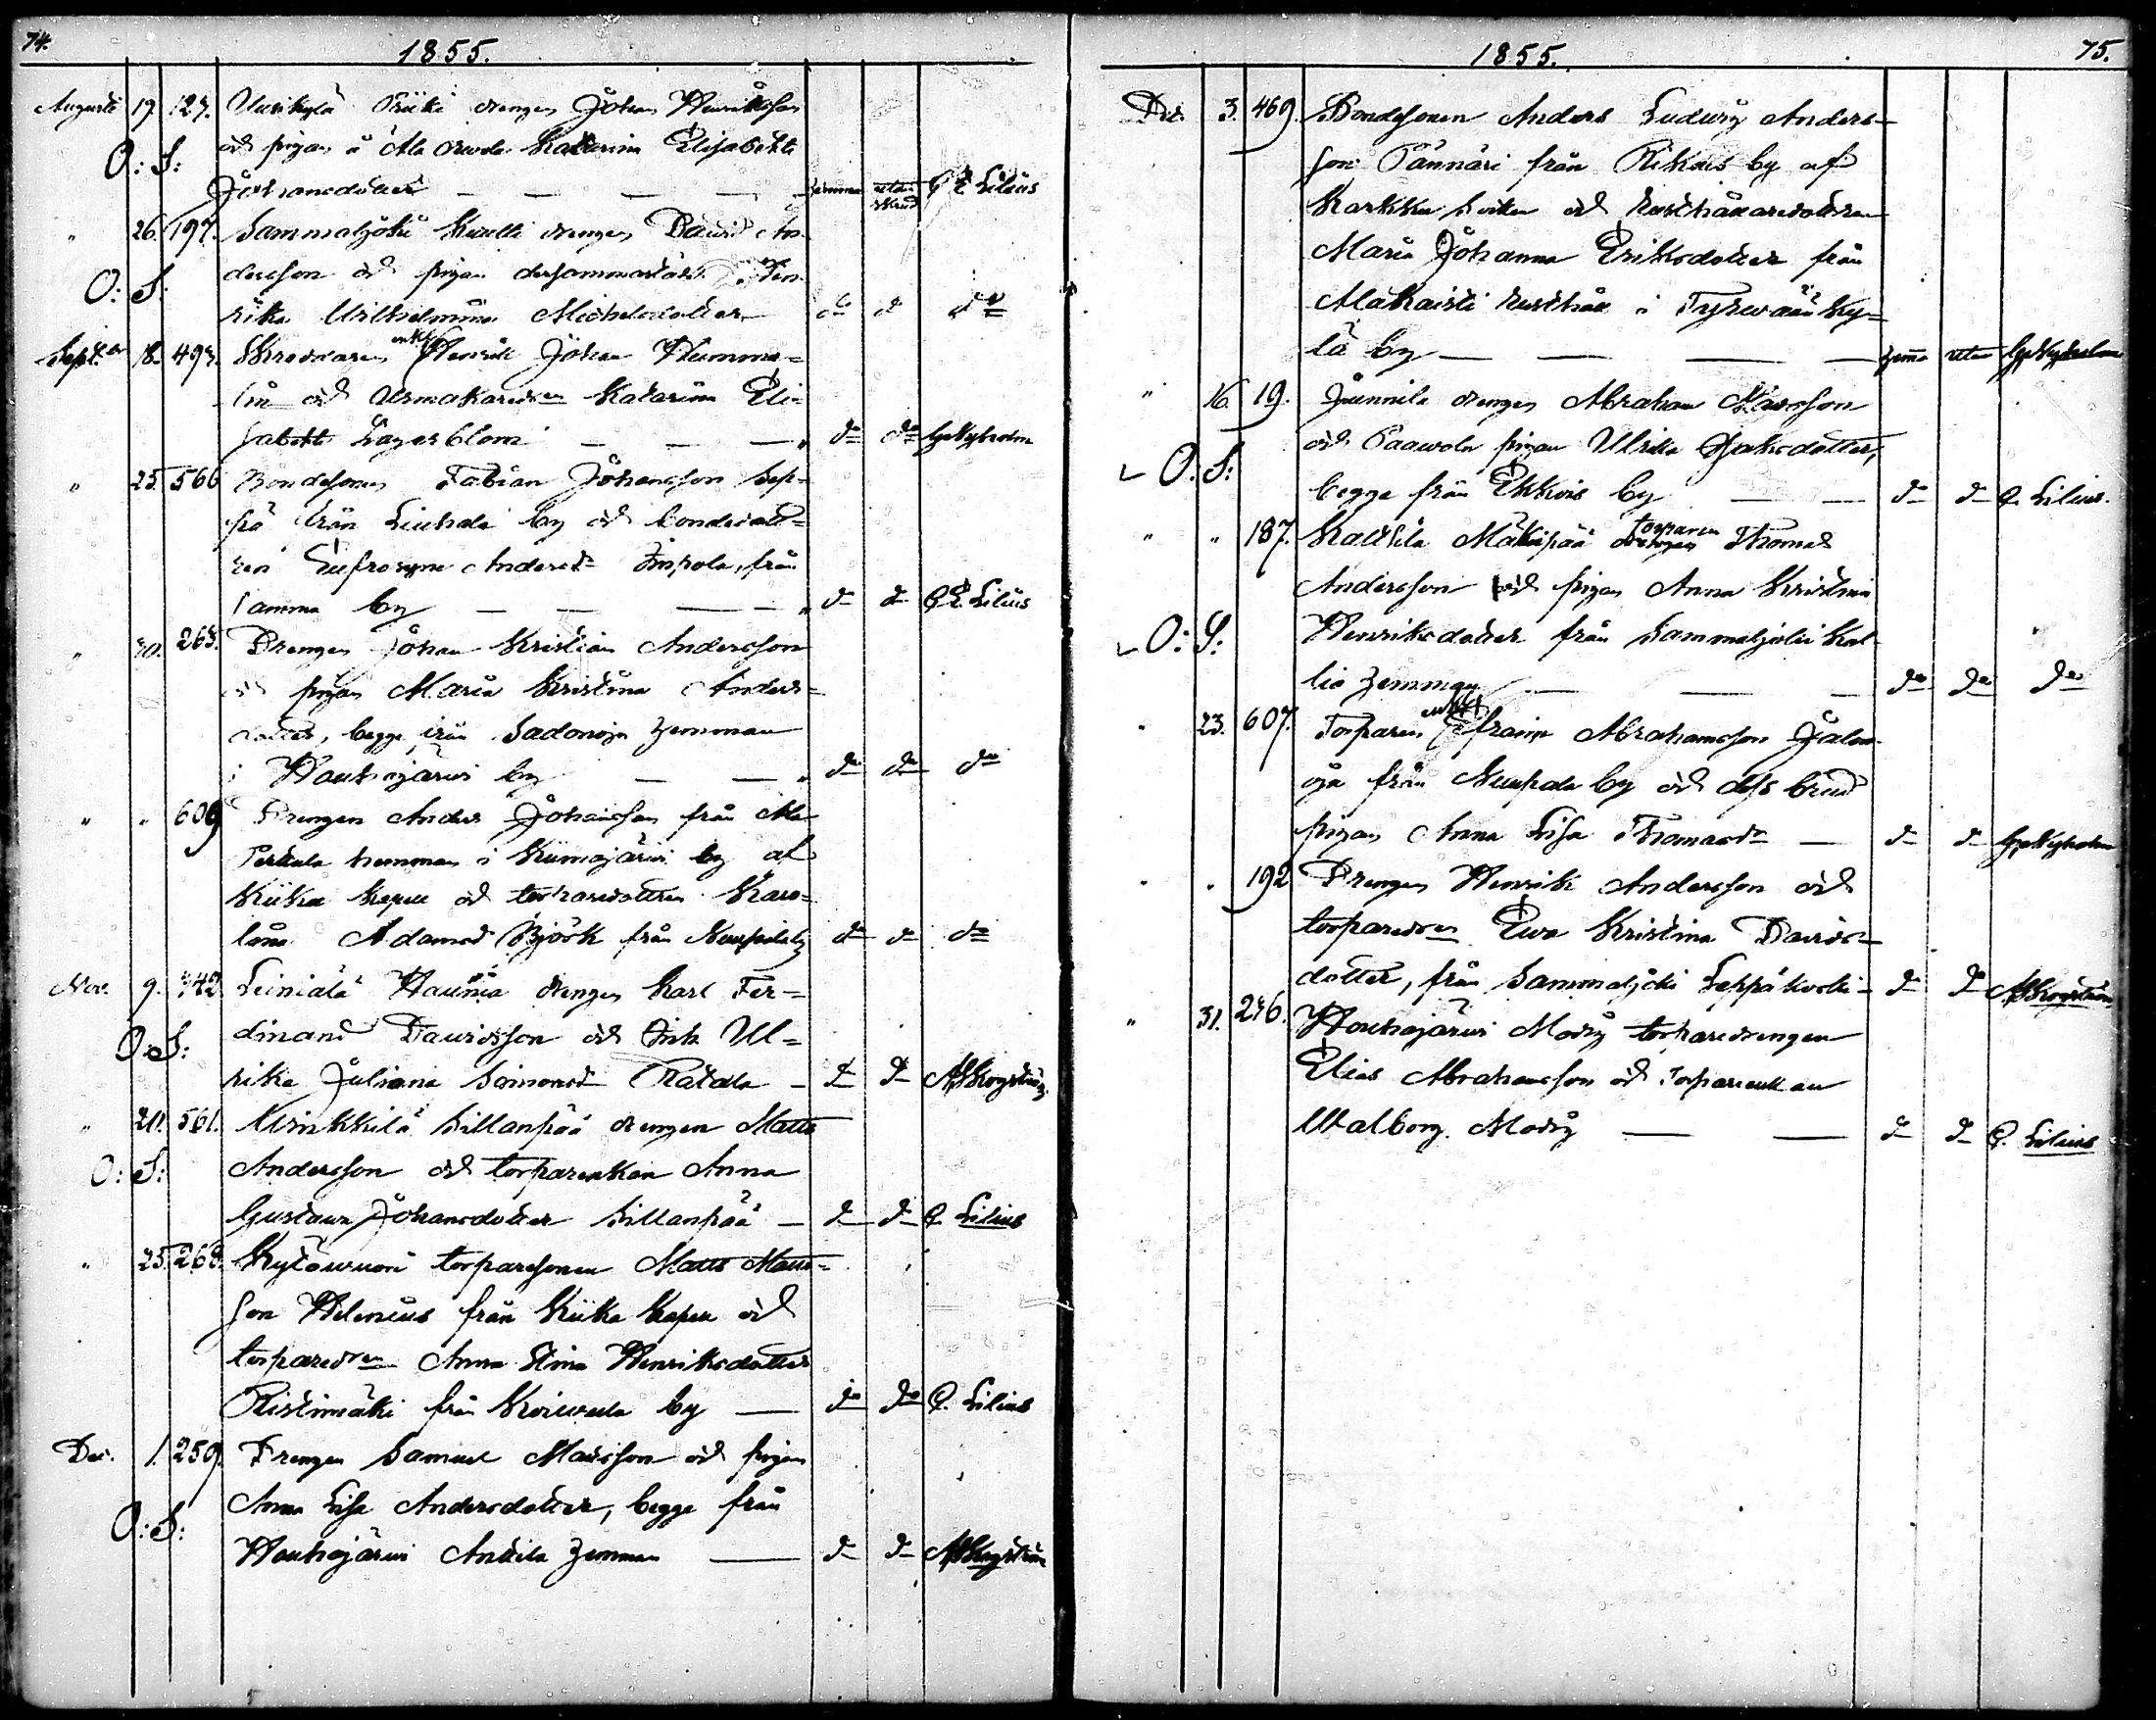 74.
1855.
Augusti 19. 127. Uusikylä Prihti drengen Johan Henriksson
O: S: och pigan å Ala Ruoda Katarina Elisabeth
Johansdotter — — — hemma utan skrud C E Lilius
" 26. 197. Sammaljoki Knuutti drengen David An-
O: S: dersson och pigan dersammastädes Hen-
rika Wilhelmina Michelsdotter do do do
Septber 18. 497. Skräddaren enkl. Henrik Johan Humma-
lin och Urmakaredren Katarina Eli-
sabeth Lagerblom — — — do do Nyholm
" 23. 566 Bondesonen Fabian Johansson Sep-
pä från Liuhala by och bondedott-
ren Eufrosyne Andersdr Impola, från
samma by — — — do do C E Lilius
" 30. 263. Drengen Johan Kristian Andersson
och pigan Maria Kristina Anders-
dotter, begge från Sadonoja hemman
i Houhajärwi by — — do do do
" " 609 Drengen Anders Johansson från Ala
Perttula hemman i Kiimajärwi by af
Kiikka kapell och torparedottren Karo-
lina Adamsdr Björk från Nuupala by do do do
Nov. 9. 442 Leiniälä Haunia drengen Karl Fer-
O: S: dinand Davidsson och Enk. Ul-
rika Juliana Simonsdr Ratala — do do A Skogström
" 20. 561. Winkkilä Sillanpää drengen Matts
O: S: Andersson och torparenkan Anna
Gustava Johansdotter Sillanpää — do do C. Lilius
" 25. 268. Kytöwuori torparesonen Matts Matts-
son Helenius från Kiikka Kapell och
torparedren Anna Stina Henriksdotter
Ristimäki från Koiwula by — do do C. Lilius
Dec. 1. 259. Drengen Samuel Mattsson och pigan
Anna Lisa Andersdotter, begge från
O: S: Houhajärwi Anttila hemman — do do A Skogström
1855.
75.
Dec. 3. 469. Bondesonen Anders Ludvig Anders-
son Pännäri från Riikais by af
Karkku Socken och Rusthållaredottren
Maria Johanna Eriksdotter från
Alakaisti Rusthåll i Tyrwään ky-
lä by — — — hemma utan Nyholm
" 16. 19. Junnila drengen Abraham Mattsson
O: S: och Paawola pigan Ulrika Isaksdotter,
begge från Ekkois by — — do do C. Lilius.
" " 187. Kaltsila Mäkipää torparen drengen Thomas
Andersson och pigan Anna Kristina
O: S: Henriksdotter från Sammaljoki Kal-
lio hemman — — — do do do
" 23. 607. Torparen enkl. Efraim Abrahamsson Jalon-
oja från Nuupala by och dess brud
pigan Anna Lisa Thomasdr — do do Nyholm
" " 192 Drengen Henrik Andersson och
torparedren Ewa Kristina Davids-
dotter, från Sammaljoki Leppäkoski — do do A Skogström
" 31. 246. Houhajärwi Modig torparedrengen
Elias Abrahamsson och Torparenkan
Walborg Modig — — do do C. Lilius